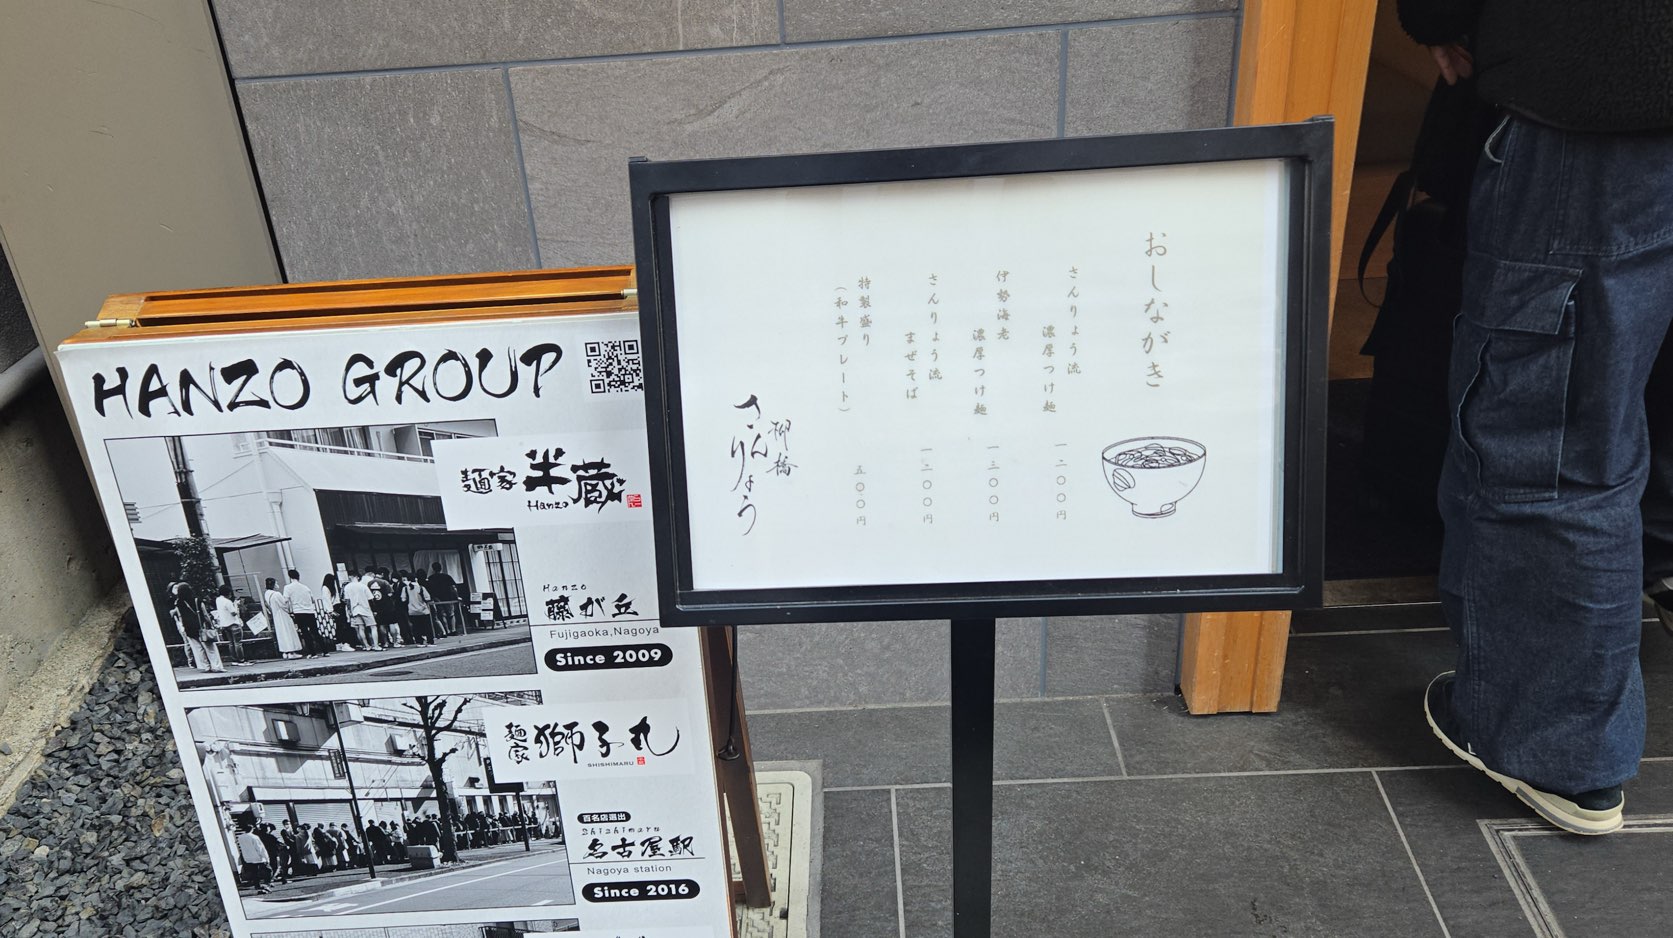 HANZO GROUP
麺家 半蔵
Hanzo
Hanzo
藤が丘
Fujigaoka,Nagoya
Since 2009
麺家 獅子丸
SHISHIMARU
百名店選出
Shishimaru
名古屋駅
Nagoya station
Since 2016
おしながき
さんりょう流
濃厚つけ麺
一二〇〇円
伊勢海老
濃厚つけ麺
一三〇〇円
さんりょう流
まぜそば
一二〇〇円
特製盛り
(和牛プレート)
五〇〇円
柳橋
さんりょう